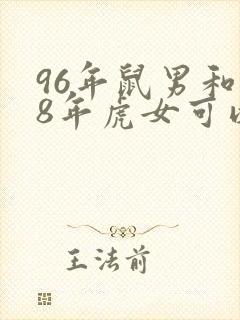 96年鼠男和
8年虎女可以
王法前